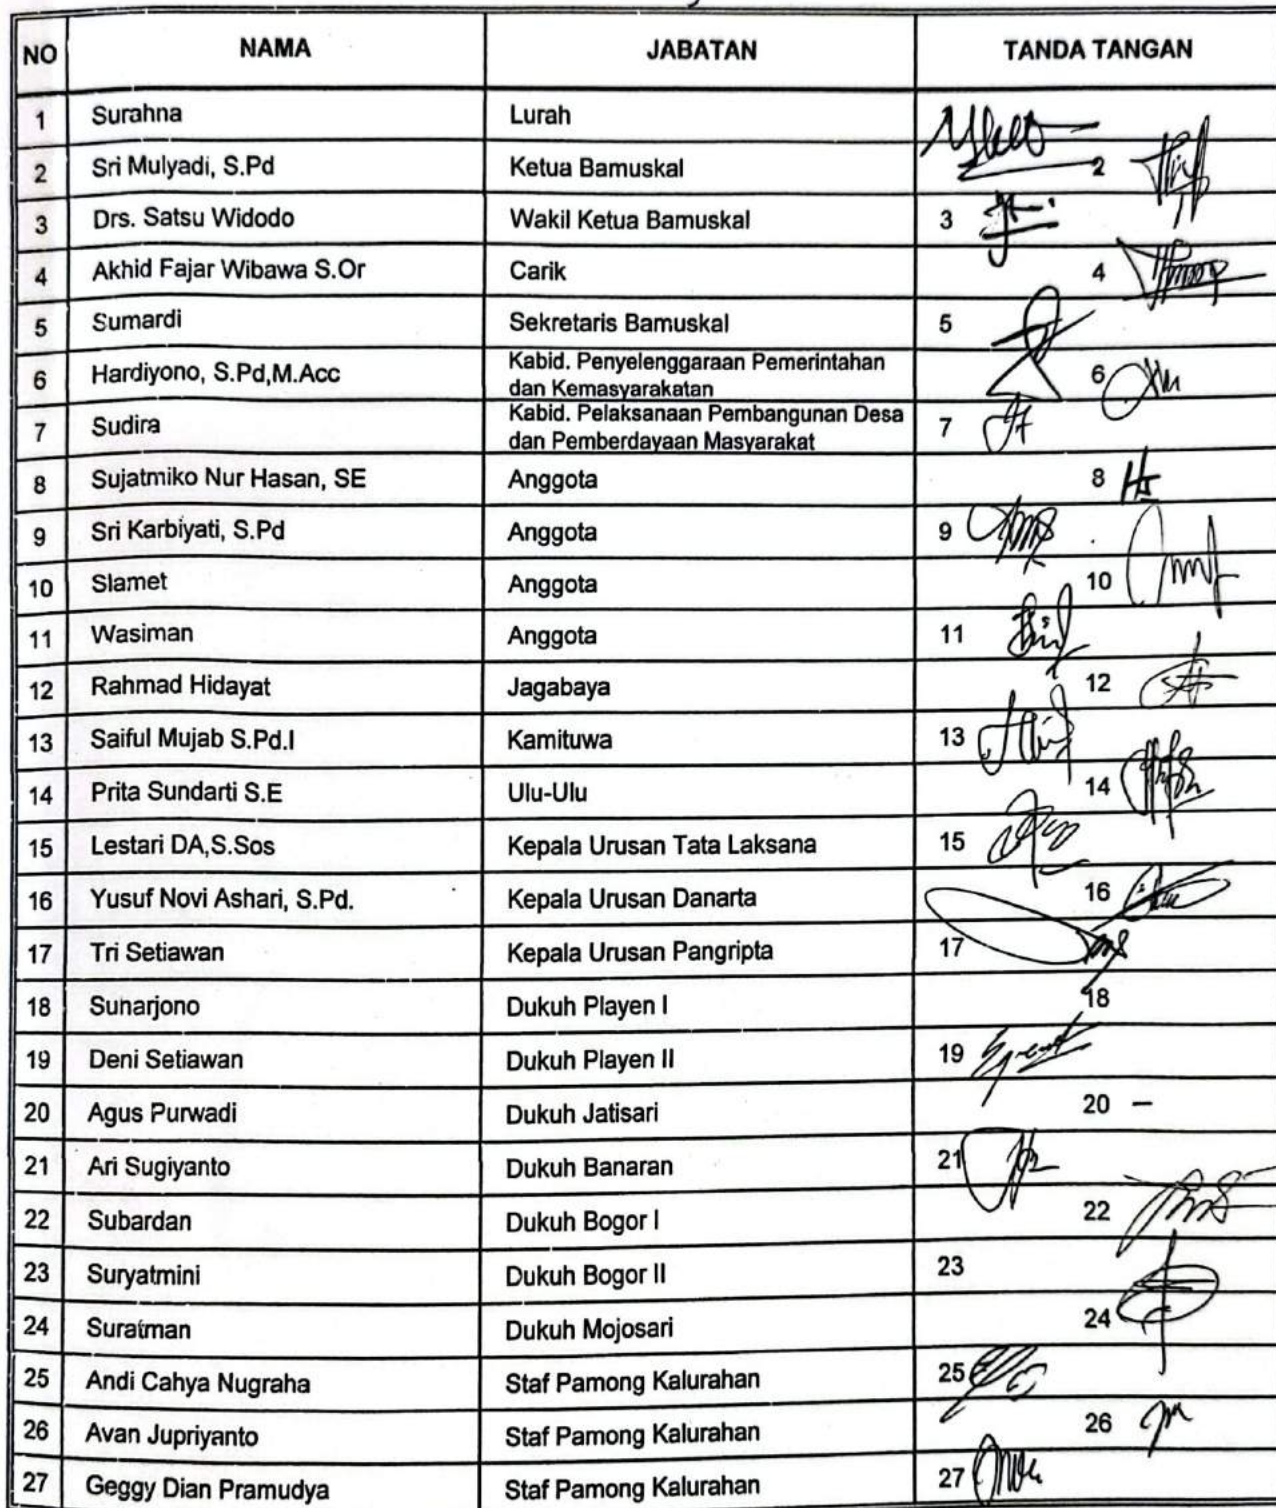 NO NAMA JABATAN TANDA TANGAN
1 Surahna Lurah
2 Sri Mulyadi, S.Pd Ketua Bamuskal 2
3 Drs. Satsu Widodo Wakil Ketua Bamuskal 3
4 Akhid Fajar Wibawa S.Or Carik 4
5 Sumardi Sekretaris Bamuskal 5
6 Hardiyono, S.Pd,M.Acc Kabid. Penyelenggaraan Pemerintahan
dan Kemasyarakatan 6
7 Sudira Kabid. Pelaksanaan Pembangunan Desa
dan Pemberdayaan Masyarakat 7
8 Sujatmiko Nur Hasan, SE Anggota 8
9 Sri Karbiyati, S.Pd Anggota 9
10 Slamet Anggota 10
11 Wasiman Anggota 11
12 Rahmad Hidayat Jagabaya 12
13 Saiful Mujab S.Pd.I Kamituwa 13
14 Prita Sundarti S.E Ulu-Ulu 14
15 Lestari DA,S.Sos Kepala Urusan Tata Laksana 15
16 Yusuf Novi Ashari, S.Pd. Kepala Urusan Danarta 16
17 Tri Setiawan Kepala Urusan Pangripta 17
18 Sunarjono Dukuh Playen I 18
19 Deni Setiawan Dukuh Playen II 19
20 Agus Purwadi Dukuh Jatisari 20 –
21 Ari Sugiyanto Dukuh Banaran 21
22 Subardan Dukuh Bogor I 22
23 Suryatmini Dukuh Bogor II 23
24 Suratman Dukuh Mojosari 24
25 Andi Cahya Nugraha Staf Pamong Kalurahan 25
26 Avan Jupriyanto Staf Pamong Kalurahan 26
27 Geggy Dian Pramudya Staf Pamong Kalurahan 27